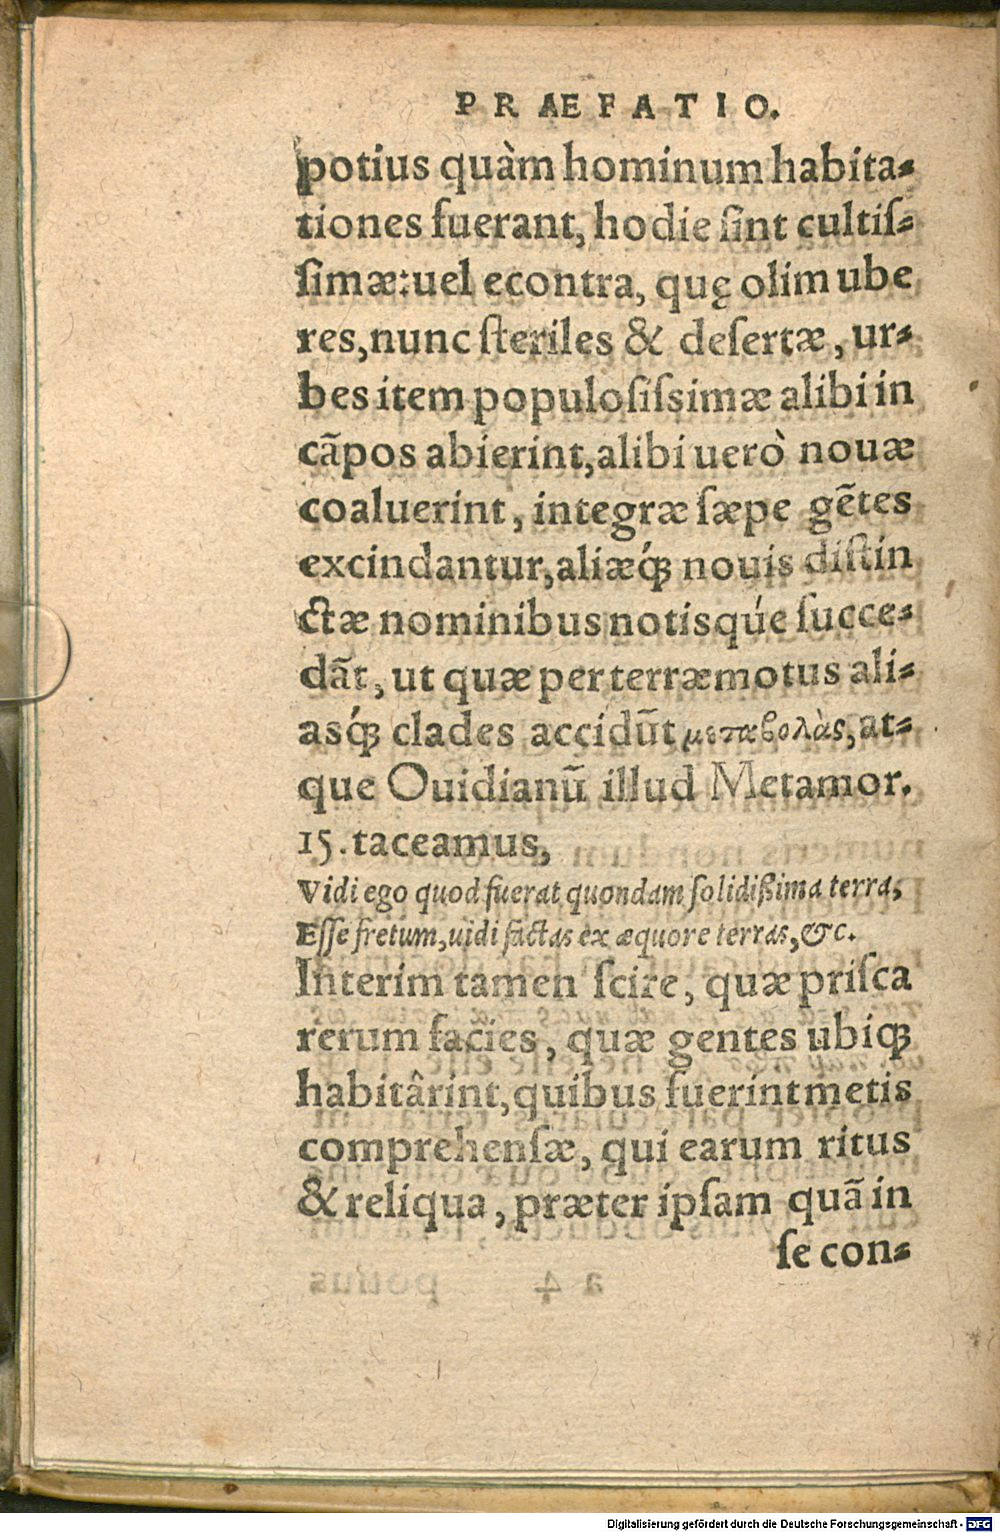 PRÆFATIO.
potius quàm hominum habita-
tiones fuerant, hodie ſint cultiſ-
ſimæ: uel econtra, quę olim ube
res, nunc ſteriles & deſertæ, ur-
bes item populoſiſsimæ alibi in
cãpos abierint, alibi uerò nouæ
coaluerint, integræ ſæpe gẽtes
excindantur, aliæq́ꝫ nouis diſtin
ctæ nominibus notisqúe ſucce-
dãt, ut quæ per terræmotus ali-
asq́ꝫ clades accidũt μεταβολὰς, at-
que Ouidianũ illud Metamor.
15. taceamus,
Vidi ego quod fuerat quondam ſolidißima terra,
Eſſe fretum, uidi factas ex æquore terras, &c.
Interim tamen ſcire, quæ priſca
rerum facies, quæ gentes ubiqꝫ
habitârint, quibus fuerint metis
comprehenſæ, qui earum ritus
& reliqua, præter ipſam quã in
ſe con-
Digitalisierung gefördert durch die Deutsche Forschungsgemeinschaft - DFG